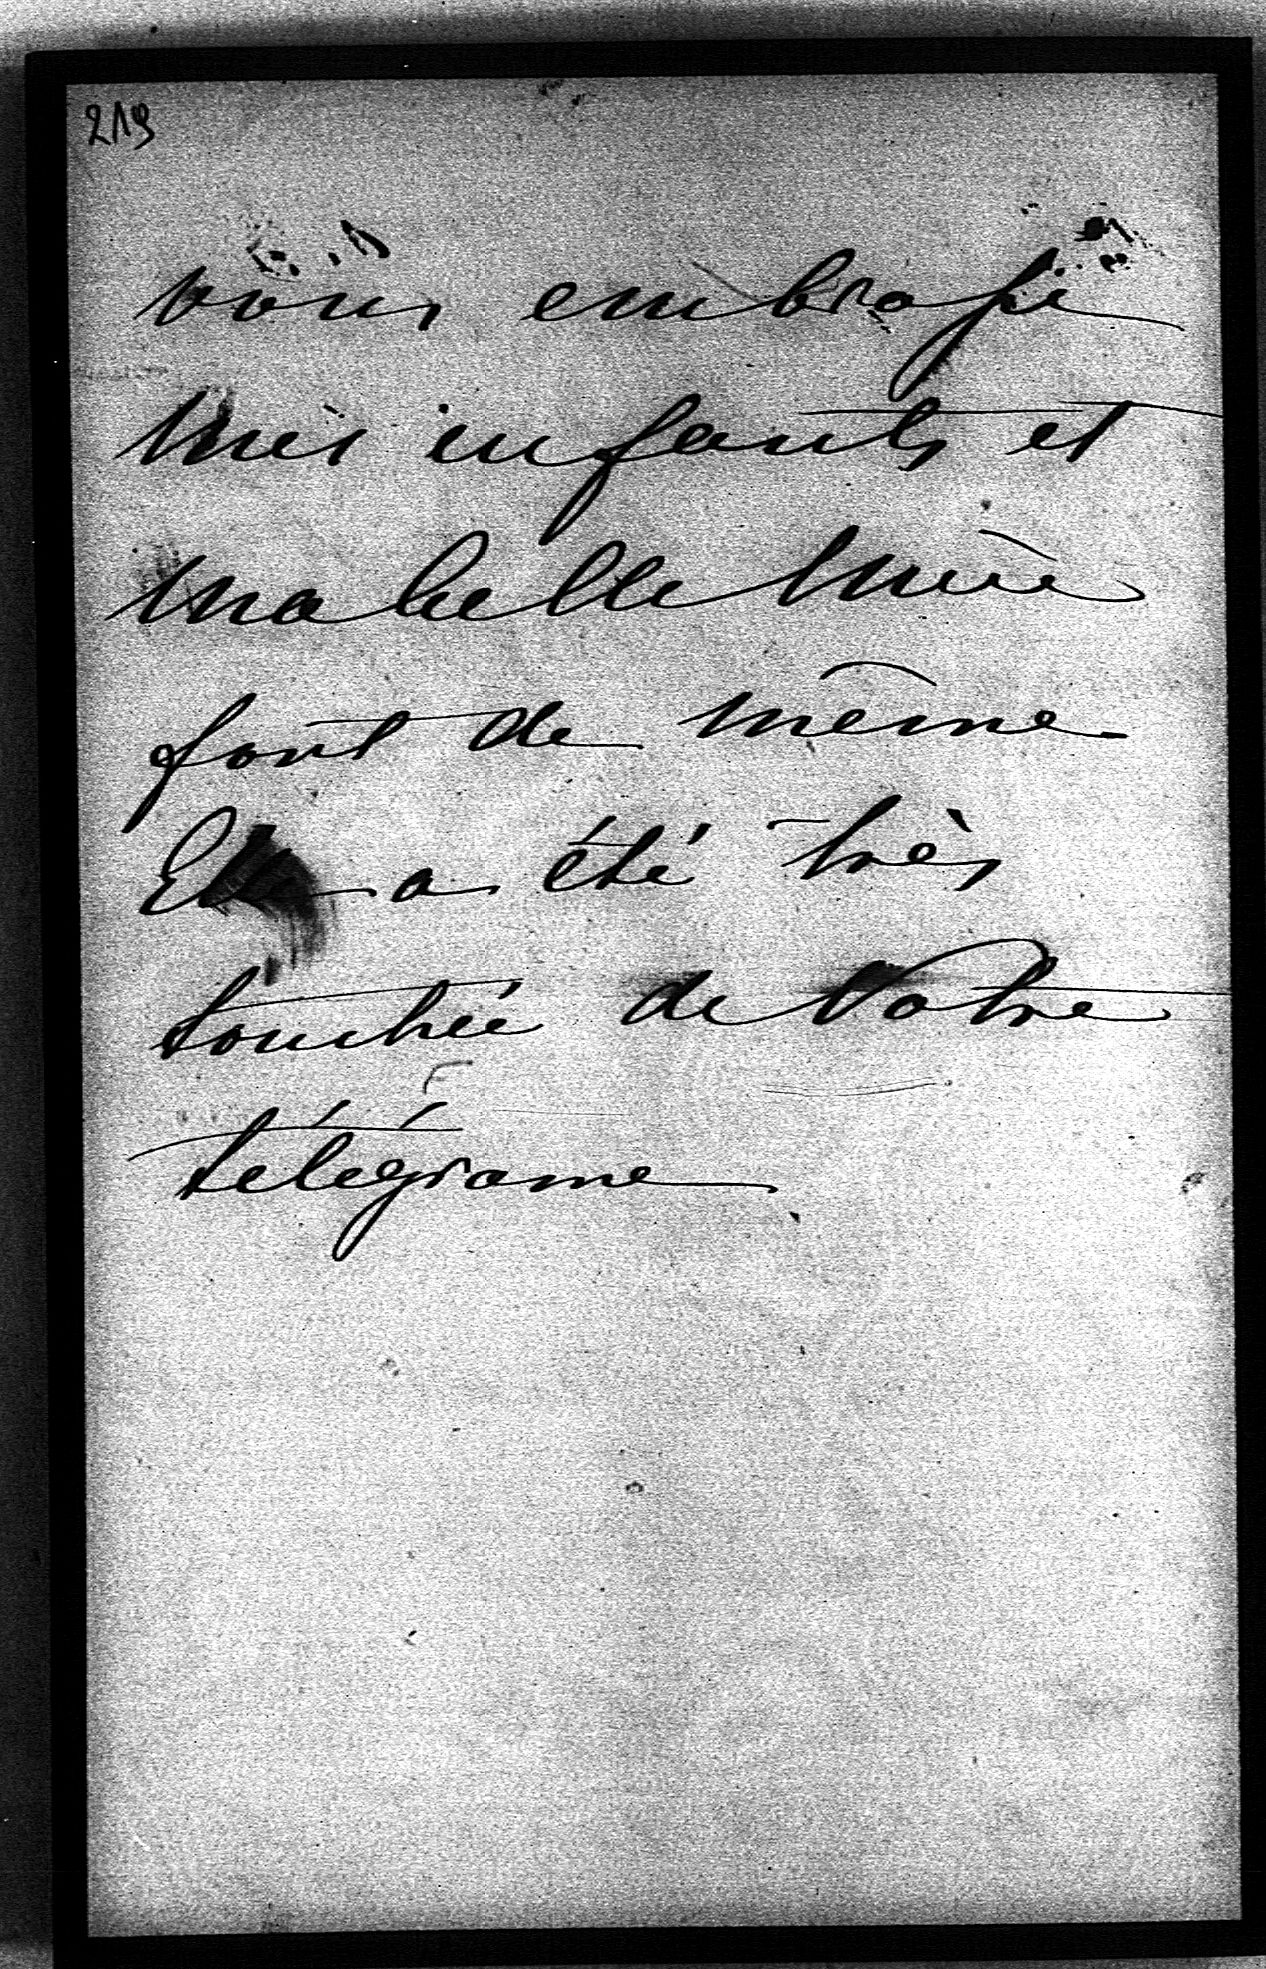 219
vous embrasse
mes enfants et
ma belle mère
font de même
Elle a été très
touchée de Votre
télégrame